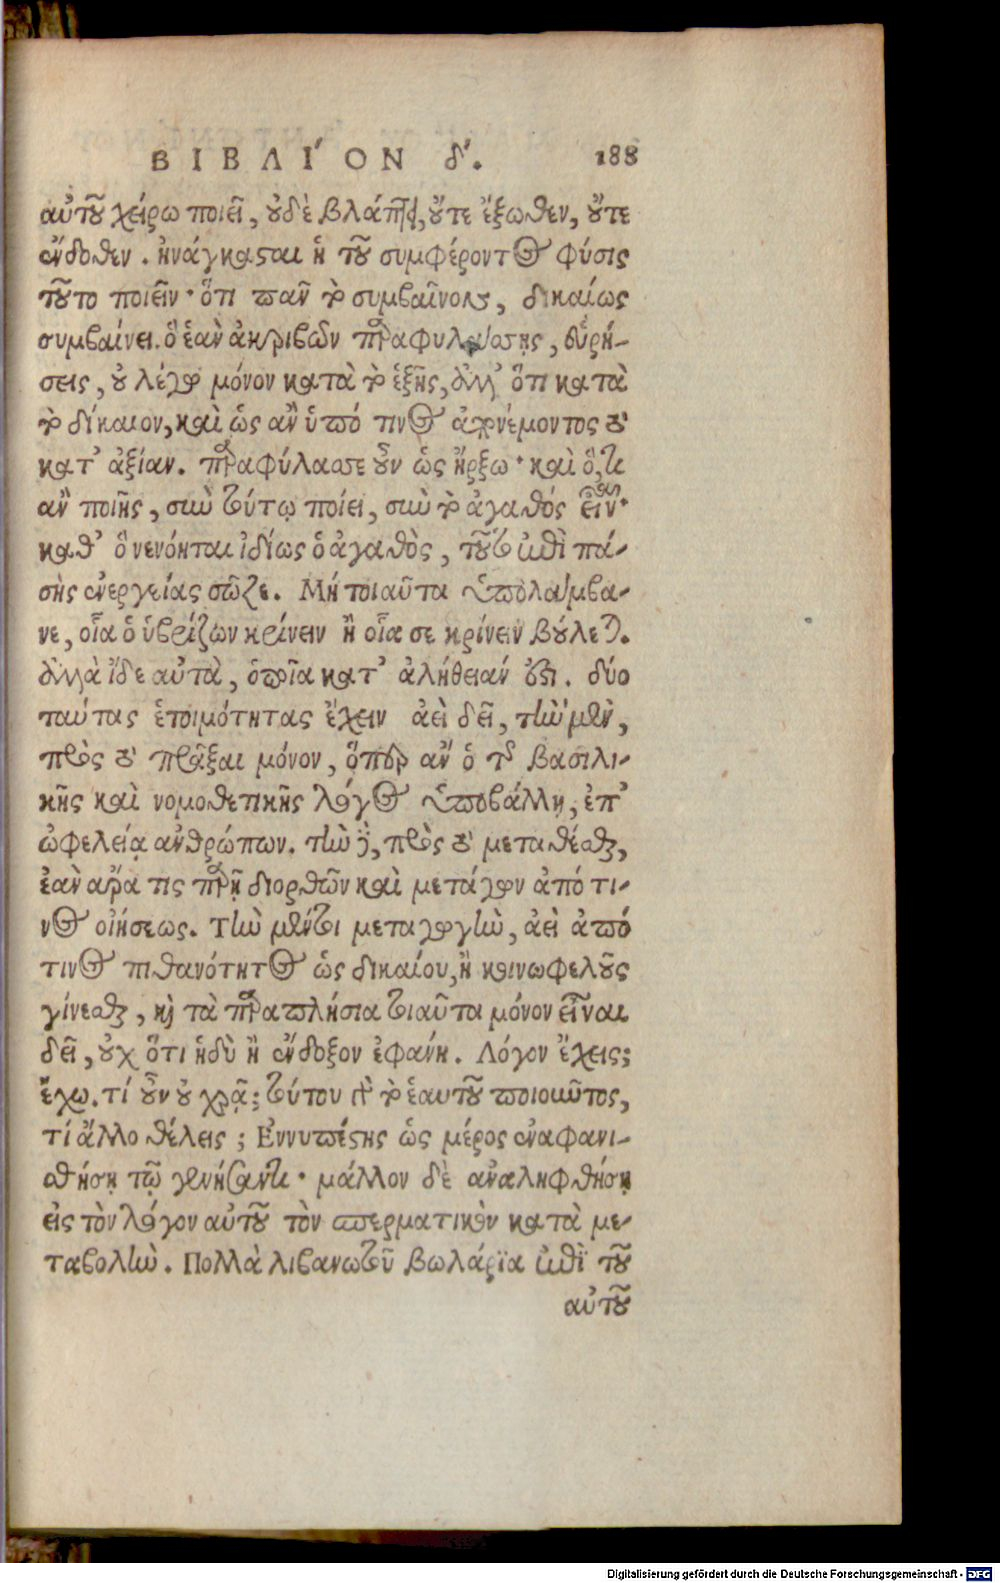 ΒΙΒΛΊΟΝ δ´. 188
αὐτοῦ χείρω ποιεῖ, οὐδὲ βλάπτει, οὔτε ἔξωθεν, οὔτε
ἔνδοθεν. ἠνάγκασται ἡ τοῦ συμφέροντος φύσις
τοῦτο ποιεῖν· ὅτι πᾶν τὸ συμβαῖνον, δικαίως
συμβαίνει. ὃ ἐὰν ἀκριβῶν παραφυλάσσῃς, εὑρή-
σεις, οὐ λέγω μόνον κατὰ τὸ ἑξῆς, ἀλλ' ὅτι κατὰ
τὸ δίκαιον, καὶ ὡς ἂν ὑπό τινος ἀπονέμοντος τὸ
κατ' ἀξίαν. παραφύλασσε οὖν ὡς ἤρξω· καὶ ὅ, τι
ἂν ποιῇς, σὺν τούτῳ ποίει, σὺν τὸ ἀγαθός εἶναι·
καθ' ὃ νενόηται ἰδίως ὁ ἀγαθὸς, τοῦτο ἐπὶ πά-
σης ἐνεργείας σῶζε. Μή τοιαῦτα ὑπολάμβα-
νε, οἷα ὁ ὑβρίζων κρίνειν ἢ οἷα σε κρίνειν βούλεται.
ἀλλὰ ἴδε αὐτὰ, ὁποῖα κατ' ἀλήθειαν ἐστι. δύο
ταύτας ἑτοιμότητας ἔχειν ἀεὶ δεῖ, τὴν μὲν,
πρὸς τὸ πρᾶξαι μόνον, ὅπερ ἂν ὁ τῆς βασιλι-
κῆς καὶ νομοθετικῆς λόγος ὑποβάλλῃ, ἐπ'
ὠφελείᾳ ἀνθρώπων. τὴν δὲ, πρὸς τὸ μεταθέσθαι,
ἐὰν ἄρα τις παρῇ διορθῶν καὶ μετάγων ἀπό τι-
νος οἰήσεως. Τὴν μέντοι μεταγωγὴν, ἀεὶ ἀπό
τινος πιθανότητος ὡς δικαίου, ἢ κοινωφελοῦς
γίνεσθαι, καὶ τὰ παραπλήσια τοιαῦτα μόνον εἶναι
δεῖ, οὐχ ὅτι ἡδὺ ἢ ἔνδοξον ἐφάνη. Λόγον ἔχεις;
ἔχω. τί οὖν οὐ χρᾷ; τούτου γὰρ τὸ ἑαυτοῦ ποιοῦντος,
τί ἄλλο θέλεις; Εννυπέστης ὡς μέρος ἐναφανι-
σθήσῃ τῷ γεννήσαντι· μάλλον δὲ ἀναληφθήσῃ
εἰς τὸν λόγον αὐτοῦ τὸν σπερματικὸν κατὰ με-
ταβολὴν. Πολλὰ λιβανωτοῦ βωλάρϊα ἐπὶ τοῦ
αὐτοῦ
Digitalisierung gefördert durch die Deutsche Forschungsgemeinschaft - DFG